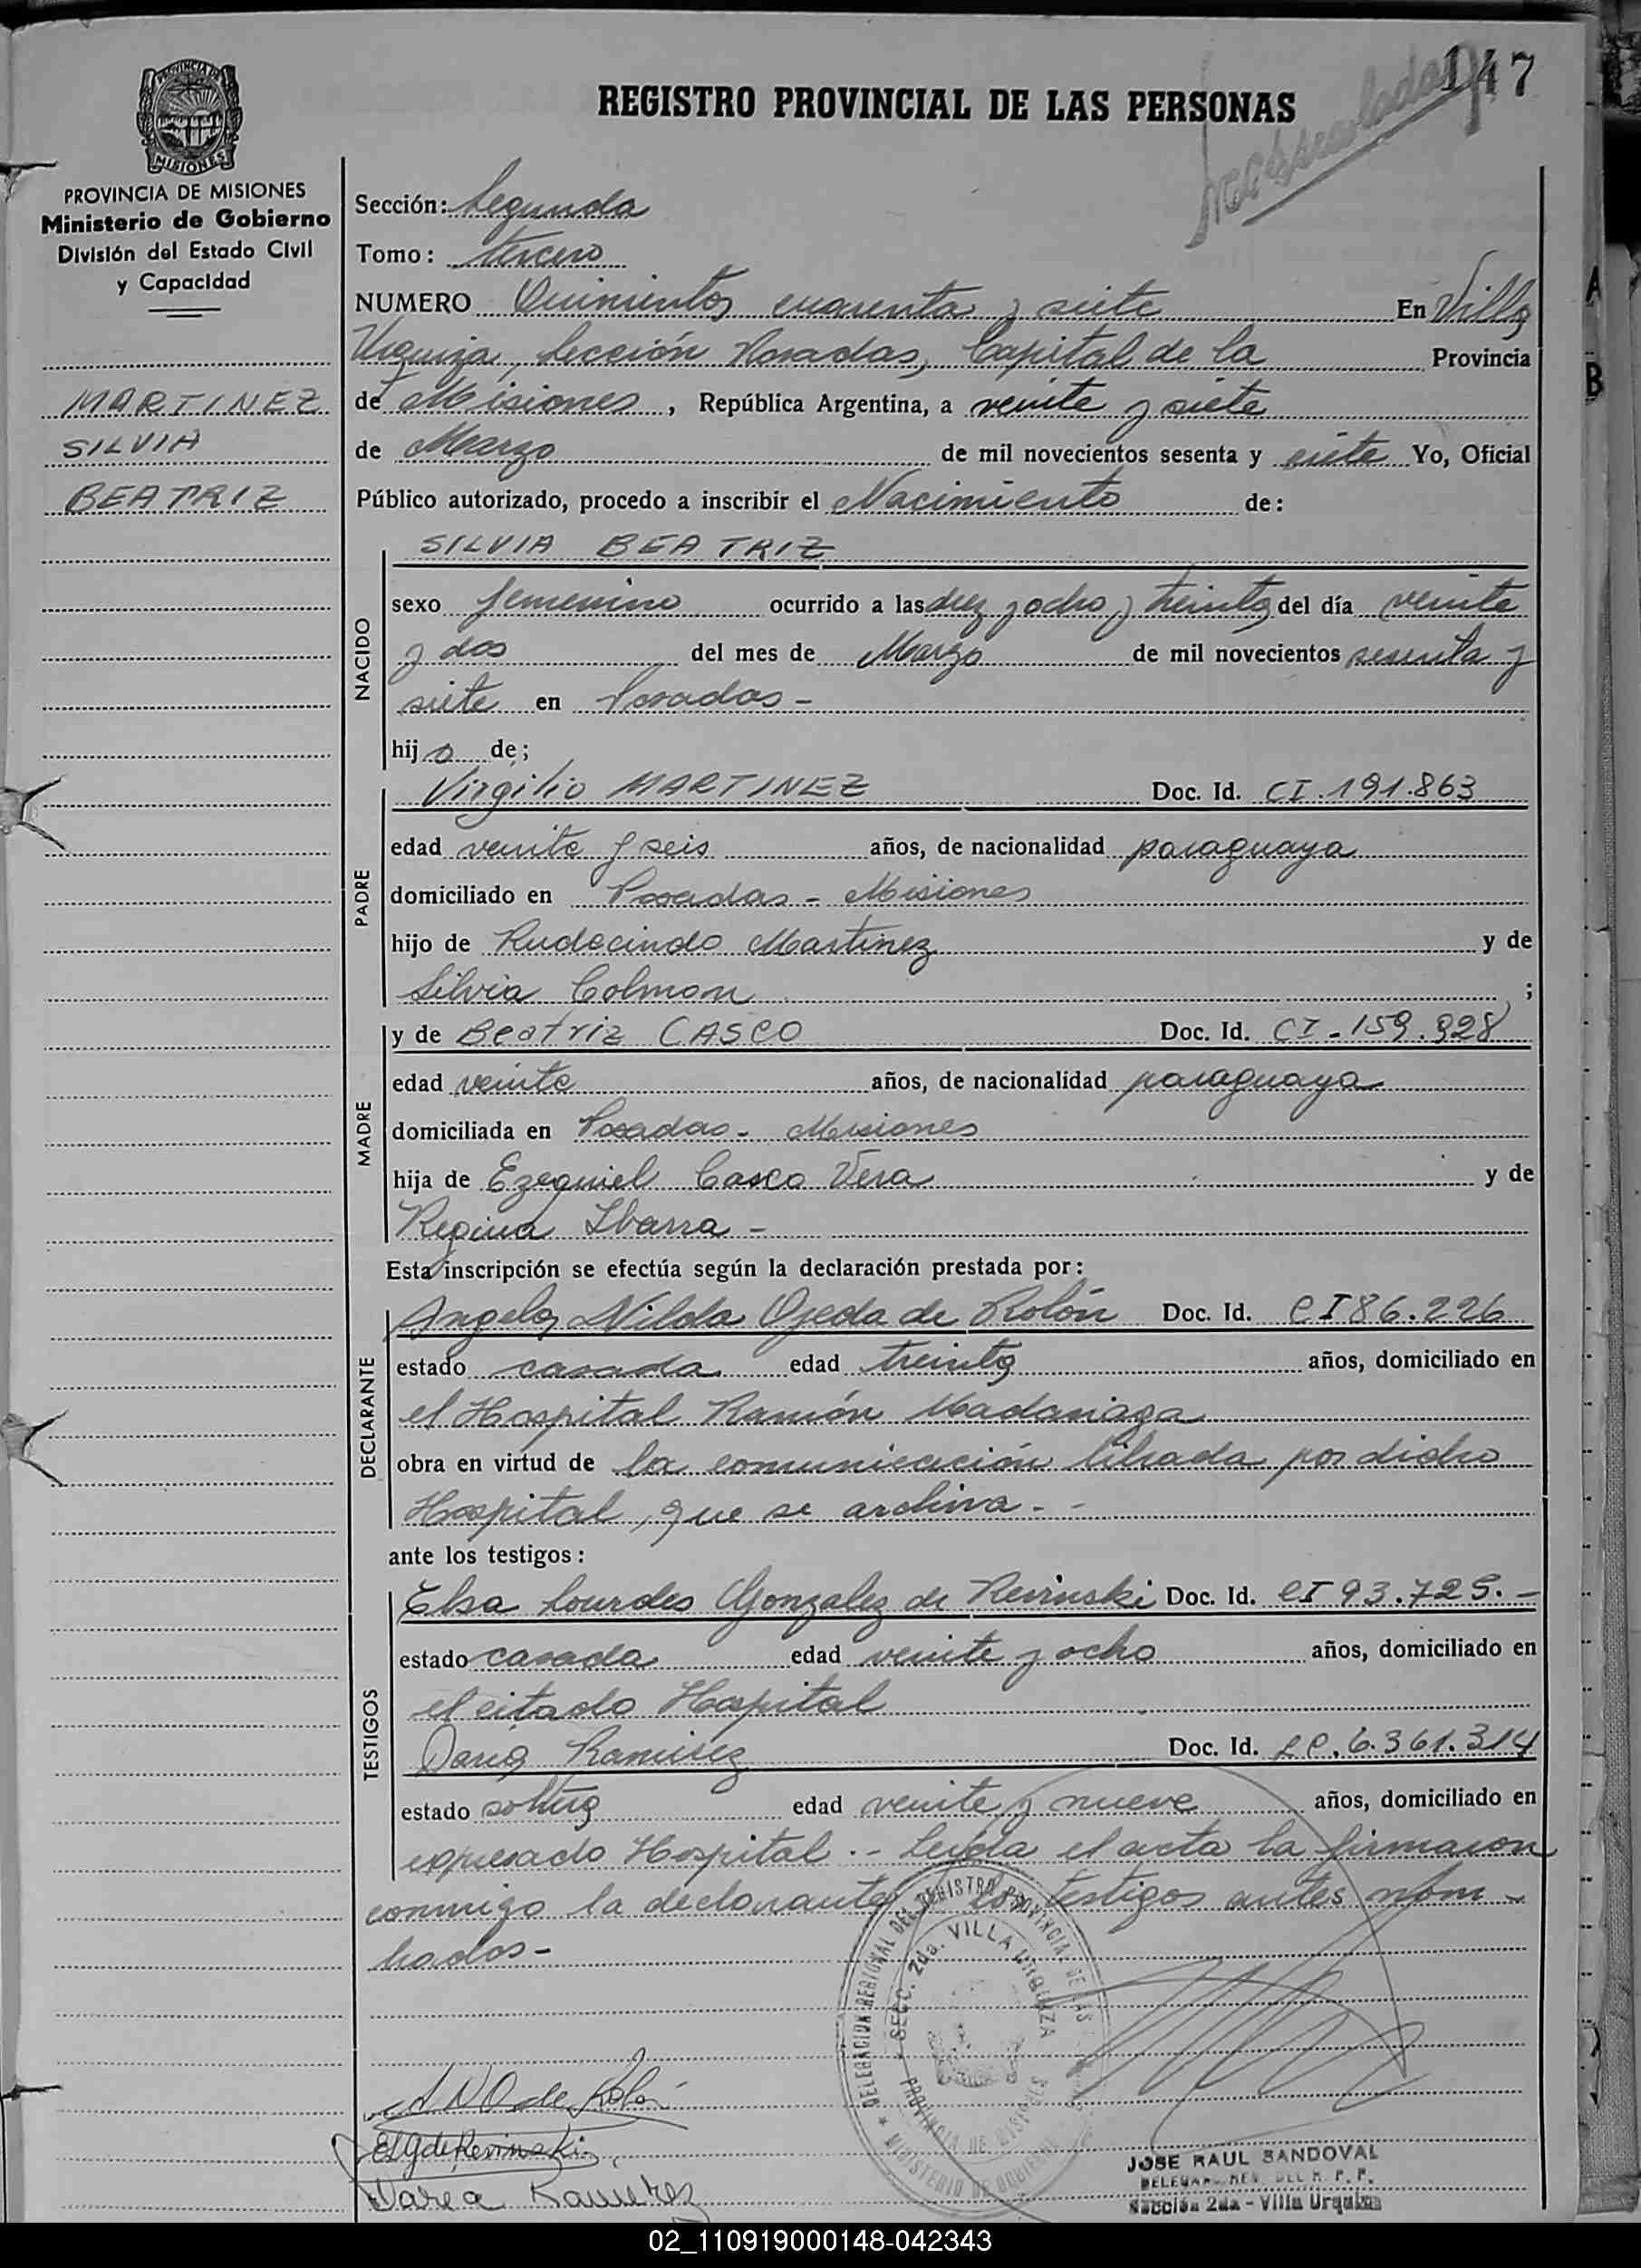 147
Matriculada
REGISTRO PROVINCIAL DE LAS PERSONAS
PROVINCIA DE
MISIONES
PROVINCIA DE MISIONES
Ministerio de Gobierno
División del Estado Civil
y Capacidad
MARTINEZ
SILVIA
BEATRIZ
Sección: Segunda
Tomo: tercero
NUMERO Quinientos cuarenta y siete En Villa
Urquiza, Sección Posadas, Capital de la Provincia
de Misiones, República Argentina, a veinte y siete
de Marzo de mil novecientos sesenta y siete Yo, Oficial
Público autorizado, procedo a inscribir el Nacimiento de:
SILVIA BEATRIZ
NACIDO
sexo femenino ocurrido a las diez y ocho y treinta del día veinte
y dos del mes de Marzo de mil novecientos sesenta y
siete en Posadas -
hija de;
PADRE
Virgilio MARTINEZ Doc. Id. CI.191.863
edad veinte y seis años, de nacionalidad paraguaya
domiciliado en Posadas - Misiones
hijo de Rudecindo Martinez y de
Silvia Colman ;
MADRE
y de Beatriz CASCO Doc. Id. CI-159.928
edad veinte años, de nacionalidad paraguaya
domiciliada en Posadas - Misiones
hija de Ezequiel Casco Vera y de
Regina Ibarra -
Esta inscripción se efectúa según la declaración prestada por:
DECLARANTE
Angela Nilda Ojeda de Rolón Doc. Id. CI 86.226
estado casada edad treinta años, domiciliado en
el Hospital Ramón Madariaga
obra en virtud de la comunicación librada por dicho
Hospital, que se archiva. -
ante los testigos:
TESTIGOS
Elsa Lourdes Gonzalez de Revinski Doc. Id. CI 93.729.-
estado casada edad veinte y ocho años, domiciliado en
el citado Hospital
Daria Ramirez Doc. Id. LC.6.361.314
estado soltera edad veinte y nueve años, domiciliado en
expresado Hospital.- Leída el acta la firmaron
conmigo la declarante y los testigos antes nom-
brados-
DELEGACION REGIONAL DEL REGISTRO PROVINCIAL DE LAS
SECC. 2da. VILLA URQUIZA
PROVINCIA DE MISIONES
MINISTERIO DE GOBIERNO
A N O de Rolón
ELGdeRevinski
Darea Ramirez
JOSE RAUL SANDOVAL
DELEGADO REG. DEL R. P. P.
Sección 2da - Villa Urquiza
A
B
02_110919000148-042343